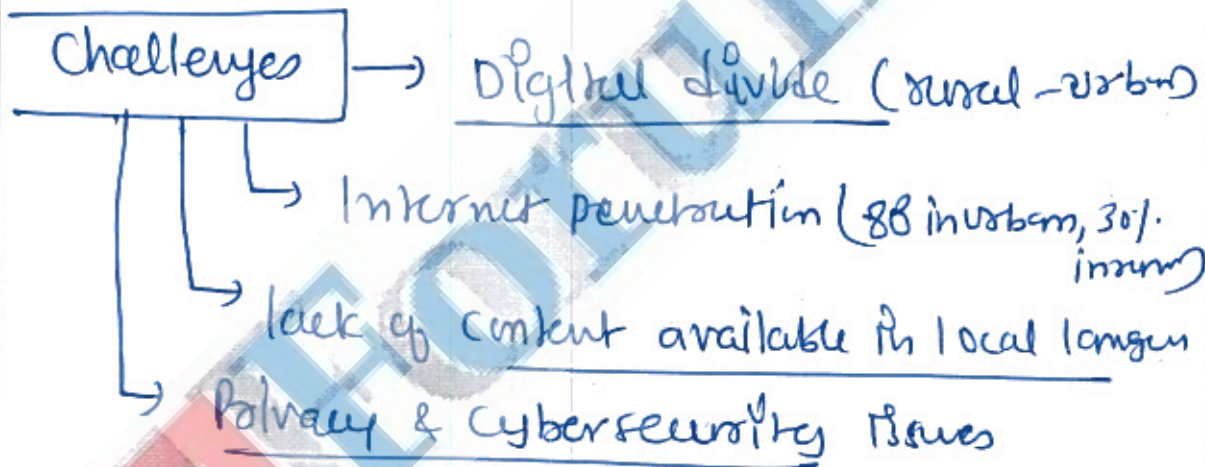 Challenges → Digital divide (rural-urban)
→ Internet penetration (88 in urban, 30%.
in rural)
→ lack of content available in local langu
→ Privacy & Cybersecurity issues
Forum